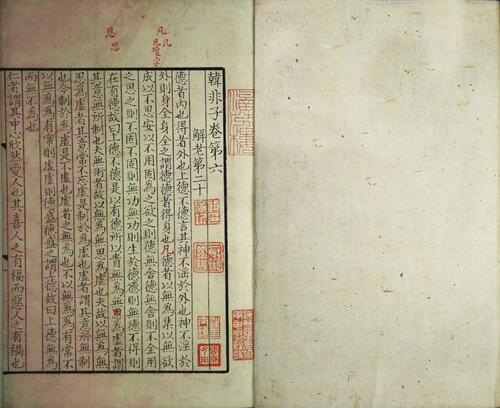 韓非子卷第六
解老第二十
德者內也得者外也上德不德言其神不淫於外也神不淫於
外則身全身全之謂德德者得身也凡德者以無為集以無欲
成以不思安以不用固為之欲之則德無舍德無舍則不全用
之思之則不固不固則無功無功則生於德德則無德不得則
在有德故曰上德不德是以有德所以貴無為無思為虛者謂
其意無所制也夫無術者故以無為無思為虛也夫故以無為無
思為虛者其意常不忘虛是制於為虛也虛者謂其意所無制
也今制於為虛是不虛也虛者之無為也不以無為為有常不
以無為為有常則虛虛則德盛德盛之謂上德故曰上德無為
而無不為也
仁者謂其中心欣然愛人也其喜人之有福而惡人之有禍也
凡
凡
思